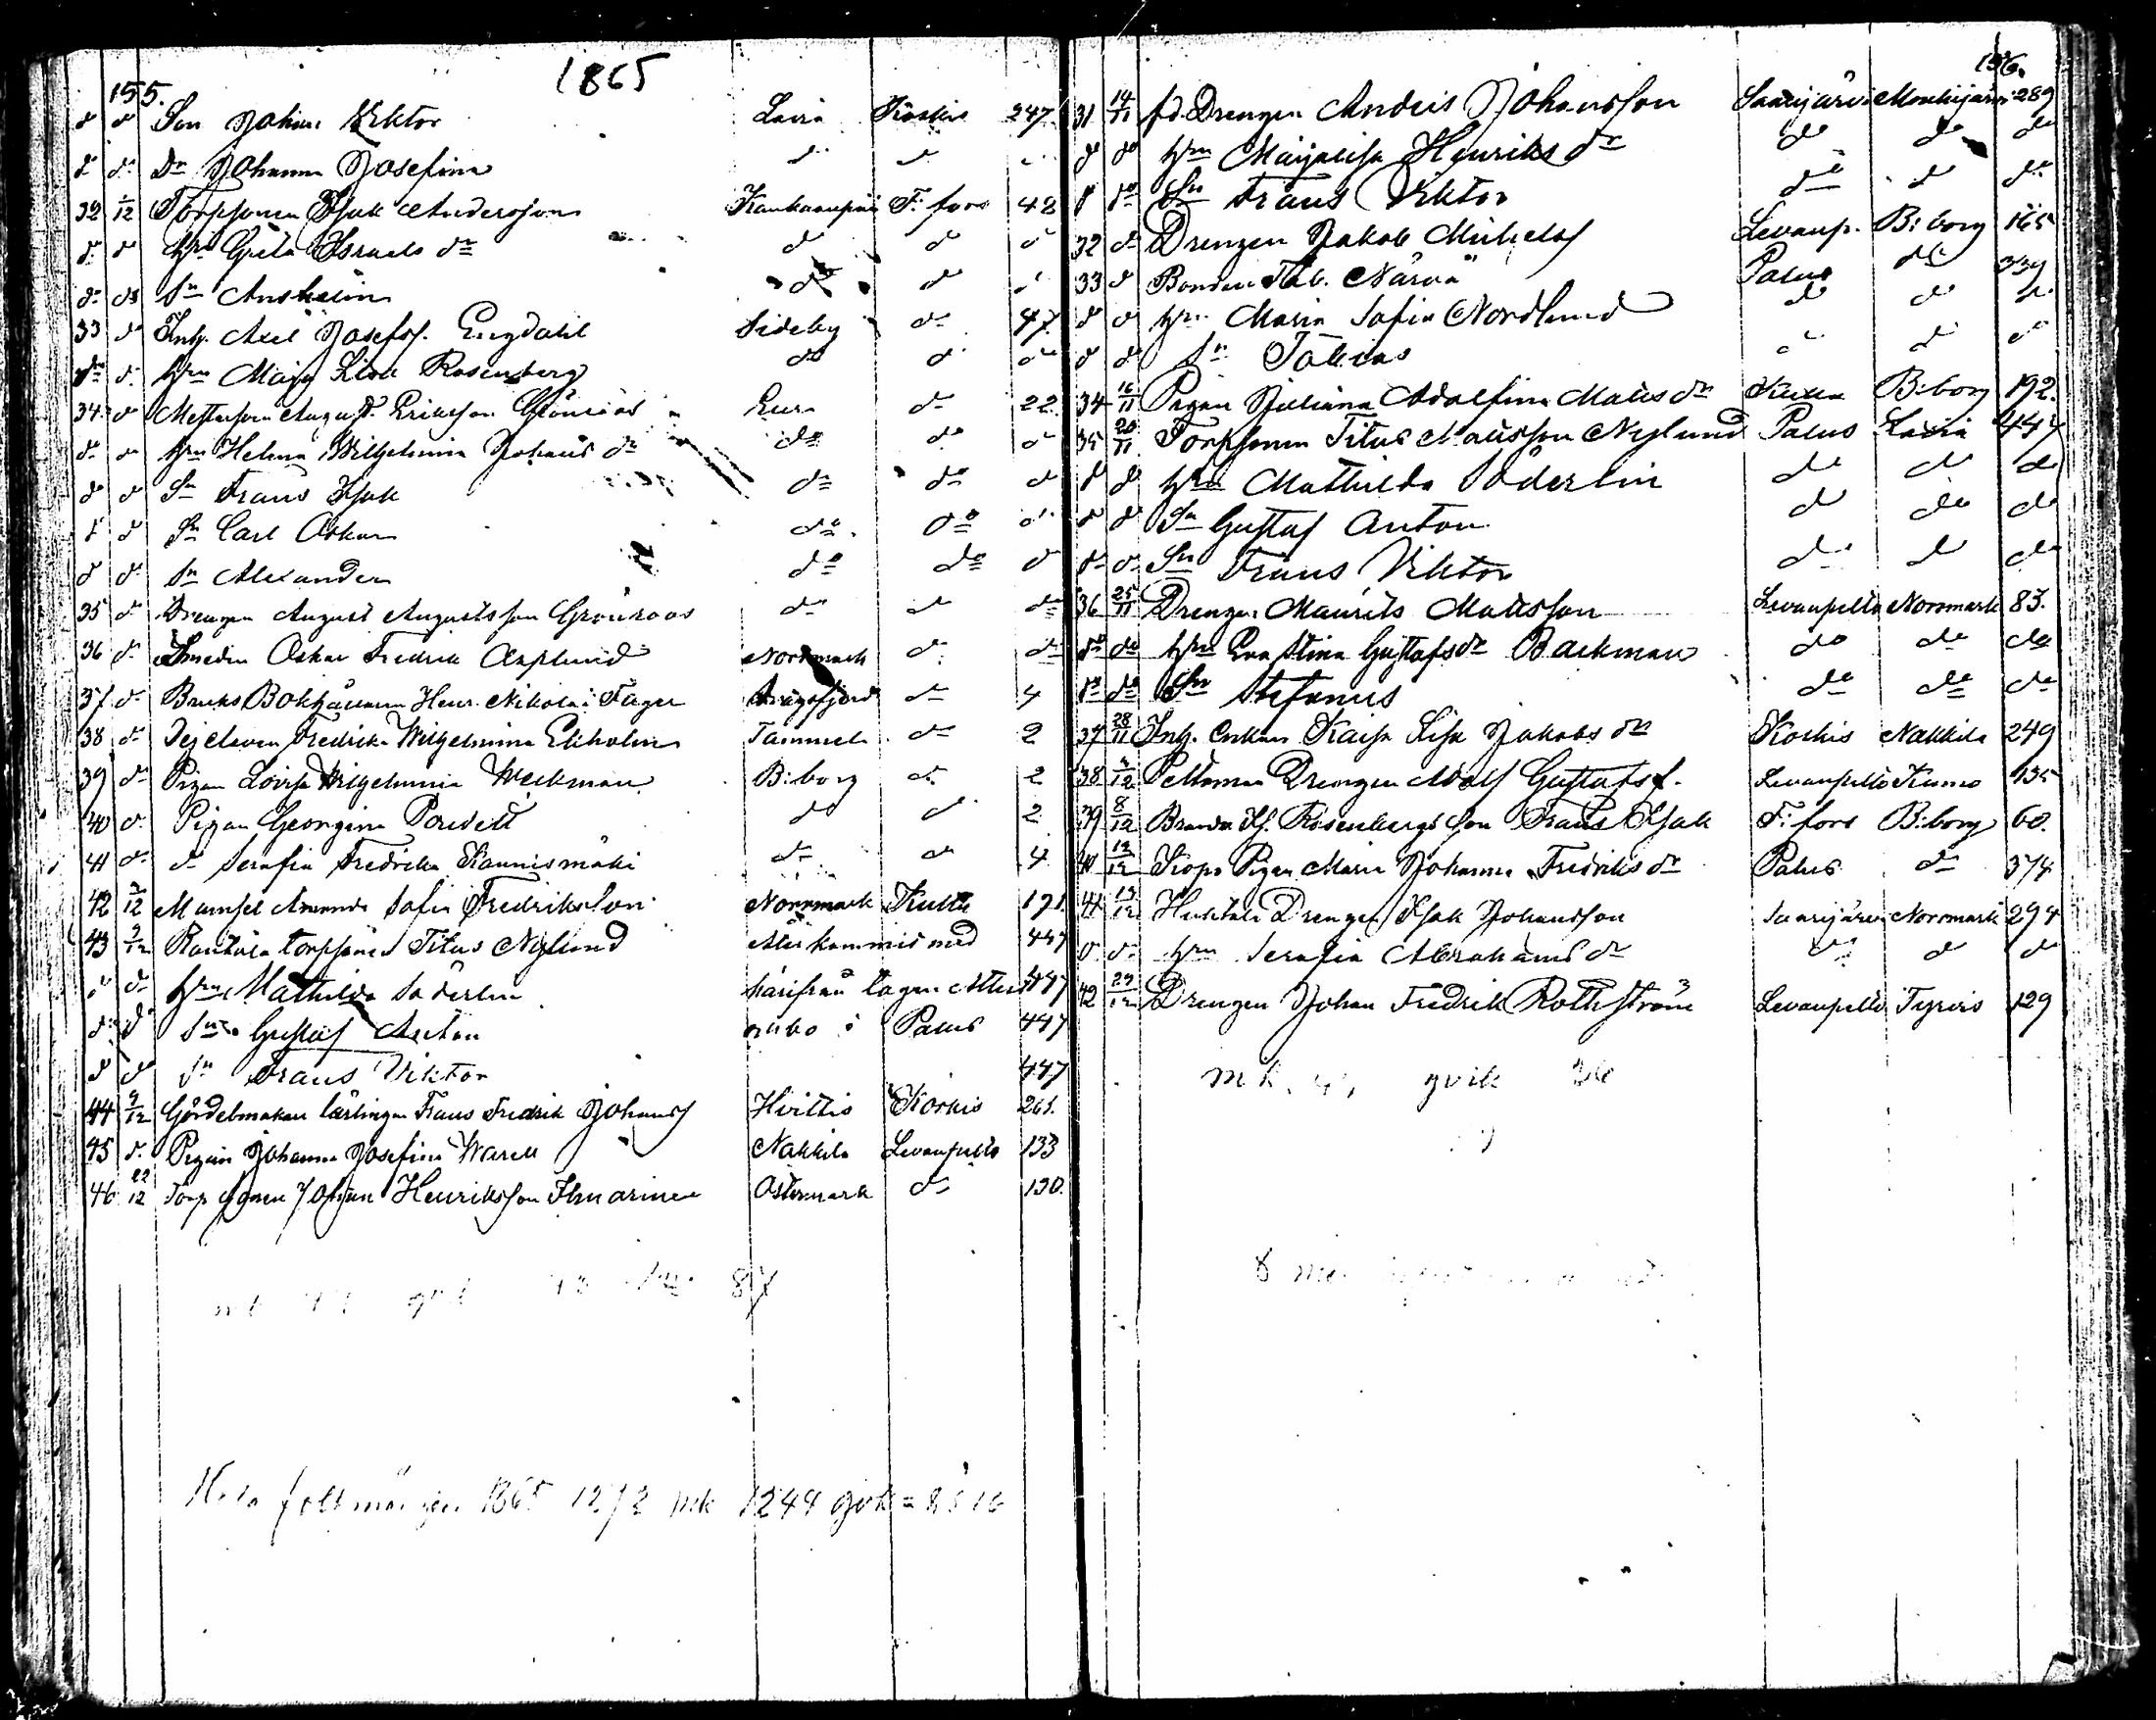 155.
1865
d d Son Johan Viktor Lavia Koskis 247.
d d Dr Johanna Josefina d d
32 1/12 Torpsonen Isak Andersson Kankaanpää F:fors 48
d d hu Greta Israels dr d d d
d do Sn Anshelm do d d
33 d Inh. Axel Josefss. Engdahl Sideby do 47
do d. hru Maja Lisa Rosenberg do d do
34 d August Eriksson Grönroos Eura do 22
d d hru Helena Wilhelmina Johans dr do d d
d d Sn Frans Isak do do d
d d Sn Carl Oskar do do d
d d Sn Alexander do do d
35 d Drengen August Augustsson Grönroos do d do
36 d Smeden Oskar Fredrik Asplund Norrmark d do
37 d Bruks Bokhållaren Henr. Nikolai Fager Dragsfjerd do 4
38 d Dejeleven Fredrika Wilhelmina Ekholm Tammela do 2
39 do Pigan Lovisa Wilhelmina Weckman B:borg d 2
40 d. Pigan Georgina d d 2
41 d d Serafia Fredrika Kaunismäki do d 4
42 2/12 Mamsel Amanda Sofia Fredriksson Norrmark Kulla 191.
43 3/12 Rautala torpsonen Titus Nylund Åter kommit med 447
d d hru Mathilda Söderlin härifrån tagen attest 447
d d Sn Gustaf Anton o i Palus 447
d d Sn Frans Viktor 447
44 9/12 Gördelmakare lärlingen Frans Fredrik Johanss Hvittis Koskis 261.
45 d Pigan Johanna Josefina Warell Nakkila Levanpelto 133
46 22/12 Torpsonen Johan Henriksson Ilmarinen Östermark do 130.
87
Hela folkmängden 1865 1272 mk 1244 qvk = 2516
156.
31 14/11 fd. Drengen Anders Johansson Saarijärvi Mouhijärvi 289
d do hru Majalisa Henriks dr do do do
d do Sn Frans Viktor do d do
32 d Drengen Jakob Mickelss Levanp. B:borg 165
33 d Bonden Närvä Palus do 339
d d hru Maria Sofia Nordlund d d d
d d Sn Tobias d d d
34 16/11 Pigan Juliana Adolfina Matts dr Kulla B:borg 192.
35 20/11 Torpsonen Titus Mattsson Nylund Palus Lavia 447
d d hru Mathilda Söderlin do do do
d d Sn Gustaf Anton d do do
d d Sn Frans Viktor do d do
36 25/11 Drengen Maurits Mattsson Levanpelto Norrmark 83.
do do hru Eva Stina Gustafs dr Backman do do do
do do Sn Stefanus do do do
37 28/11 Inh. Enkan Kaisa Lisa Jakobs dr Koskis Nakkila 249
38 4/12 Peltomaa Drengen Adolf Gustafs s. Levanpelto Kiumo 135
39 8/12 Rosenbergs son Frans Isak F:fors B:borg 60.
40 12/12 Pigan Maria Johanna Fredriks dr Palus do 374
41 15/12 Drengen Isak Johansson Saarijärvi Norrmark 294
d d hru Serafia Abrahams dr d d d
42 29/12 Drengen Johan Fredrik Rothström Levanpelto Tyrvis 129
mk. qvik